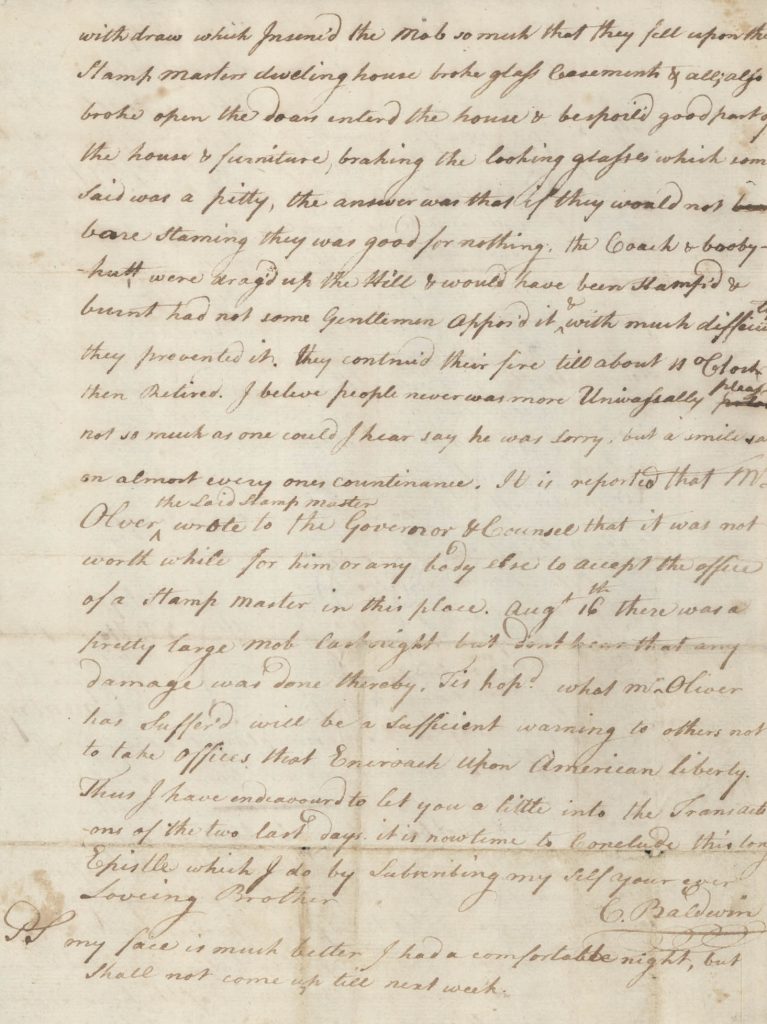 withdraw which Insene'd the Mob so much that they fell upon the
Stamp Masters dweling house broke glass Casements & all; also
broke open the doars enterd the house & bespoil'd good part of
the house & furniture, braking the looking glasses which som
Said was a pitty, the answer was that if they would not
bare staming they was good for nothing. the Coach & booby-
-hutt were drag'd up the Hill & would have been stamp'd &
burnt had not some Gentlemen Appos'd it & with much difficulty
they prevented it. they continu'd their fire till about 11 oClock
then Retired. I beleve people never was more Univassally pleas'd
not so much as one could I hear say he was sorry, but a smile sat
on almost every ones countinance. It is reported that Mr
Olver, the said Stamp Master wrote to the Governor & Counsel that it was not
worth while for him or any body else to accept the office
of a Stamp Master in this place. Augt 16th there was a
pretty large Mob last night but dont hear that any
damage was done thereby. Tis hop'd what mr Oliver
has suffer'd will be a sufficient warning to others not
to take Offices that Encroach upon American liberty.
Thus I have endeavourd to let you a little into the Transacti
-ons of the two last days. it is now time to Conclude this long
Epistle which I do by Subscribing my self your ever
Loveing Brother
C. Baldwin
PS my face is much better I had a comfortable night, but
shall not come up till next week.